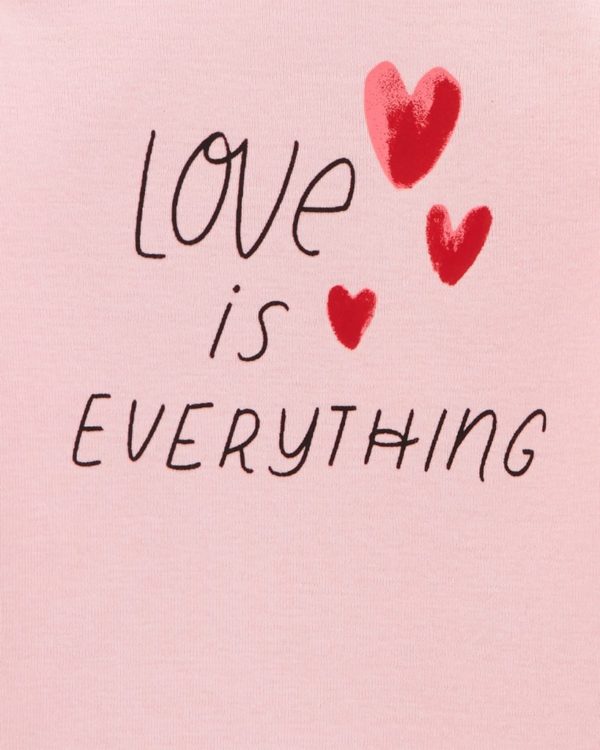 Love
is
EVERYTHING